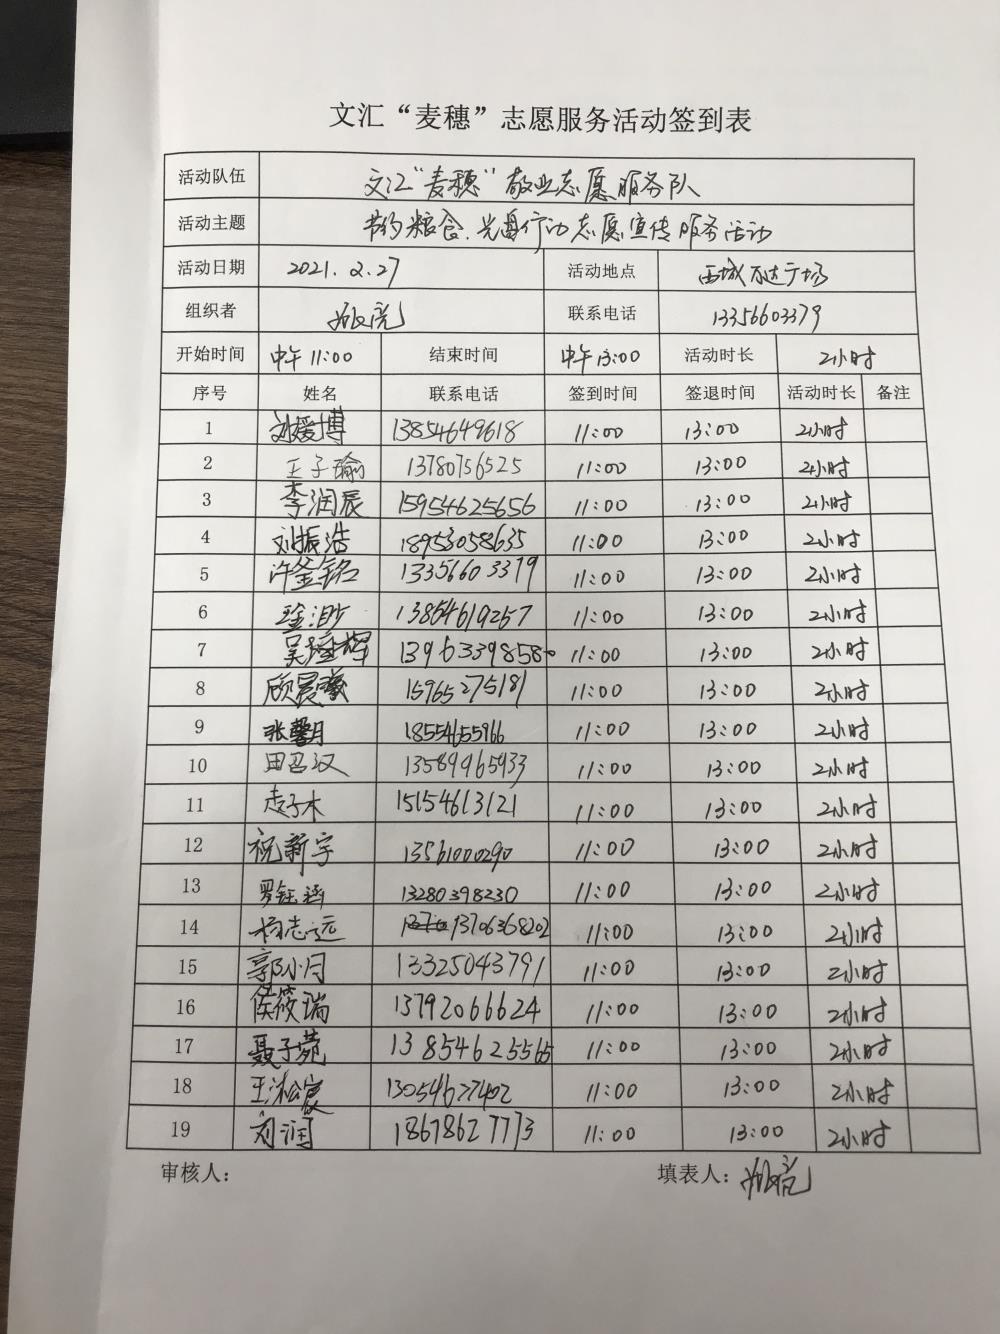 文汇“麦穗”志愿服务活动签到表
活动队伍 文汇“麦穗”敬业志愿服务队
活动主题 节约粮食、光盘行动志愿宣传服务活动
活动日期 2021.2.27 活动地点 西城万达广场
组织者 联系电话 13356603379
开始时间 中午11:00 结束时间 中午13:00 活动时长 2小时
序号 姓名 联系电话 签到时间 签退时间 活动时长 备注
1 刘媛博 13854649618 11:00 13:00 2小时
2 王子瑜 13780756525 11:00 13:00 2小时
3 李润辰 15954625656 11:00 13:00 2小时
4 刘振浩 18953058635 11:00 13:00 2小时
5 许釜铭 13356603379 11:00 13:00 2小时
6 13854619257 11:00 13:00 2小时
7 1396339858 11:00 13:00 2小时
8 顾晨曦 15965275181 11:00 13:00 2小时
9 张馨月 18554655966 11:00 13:00 2小时
10 田召汉 13589965933 11:00 13:00 2小时
11 15154613121 11:00 13:00 2小时
12 祝新宇 13561000290 11:00 13:00 2小时
13 罗钰涵 13280398230 11:00 13:00 2小时
14 杨志远 13706368202 11:00 13:00 2小时
15 郭小月 13325043791 11:00 13:00 2小时
16 侯筱瑞 13792066624 11:00 13:00 2小时
17 聂子苑 13854625565 11:00 13:00 2小时
18 13054677402 11:00 13:00 2小时
19 刘润 18678627773 11:00 13:00 2小时
审核人： 填表人：